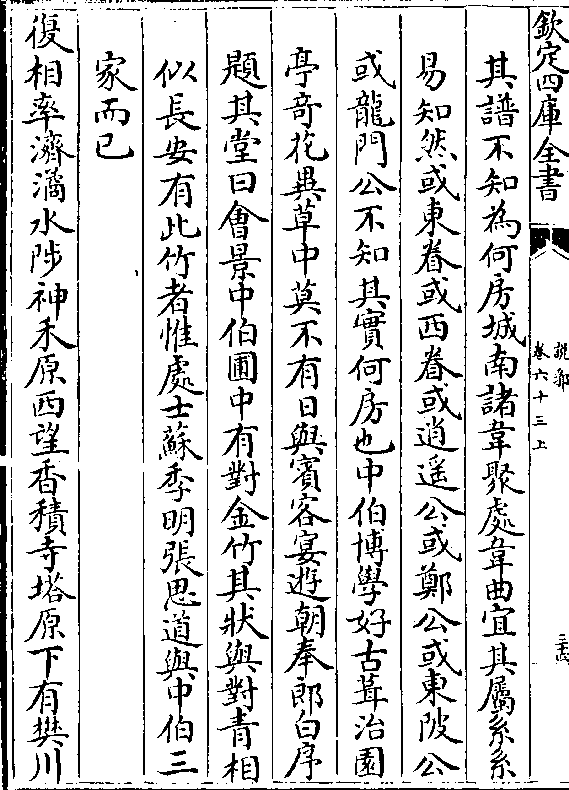 欽定四庫全書
說郛
卷六十三上
三四
其譜不知為何房城南諸韋聚處韋曲宜其屬系系
易知然或東眷或西眷或逍遥公或鄭公或東陂公
或龍門公不知其實何房也中伯博學好古葺治園
亭竒花異草中莫不有日與賓客宴遊朝奉郎白序
題其堂曰會景中伯圃中有對金竹其狀與對青相
似長安有此竹者惟處士蘇季明張思道與中伯三
家而已
復相率濟潏水陟神禾原西望香積寺塔原下有樊川